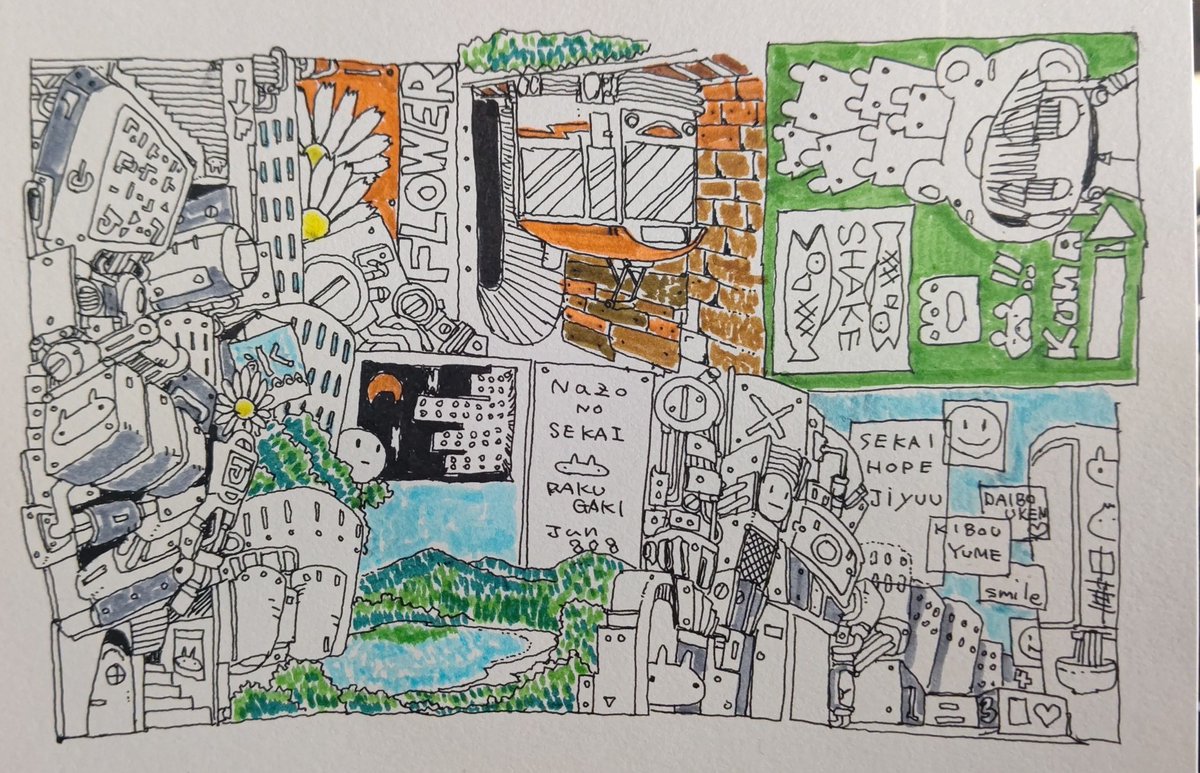 FLOWER
SHAKE
!!
KUMA
Nazo
no
SEKAI
RAKU
GAKI
Jun
808
SEKAI
HOPE
JiYUU
DAIBO
UKEN
KIBOU
YUME
smile